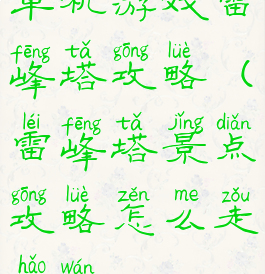 单机游戏雷
fēng tǎ gōng lüè
峰塔攻略（
léi fēng tǎ jǐng diǎn
雷峰塔景点
gōng lüè zěn me zǒu
攻略怎么走
hǎo wán